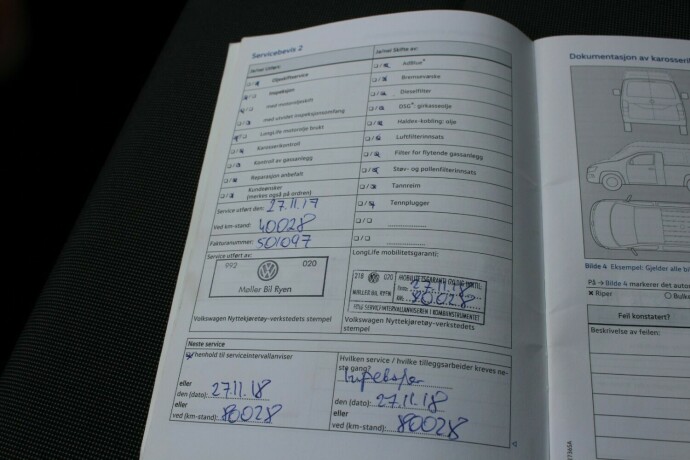 Servicebevis 2
Ja/nei Utført:
Oljeskiftservice
Inspeksjon
med motoroljeskift
med utvidet inspeksjonsomfang
LongLife motorolje brukt
Karosserikontroll
Kontroll av gassanlegg
Reparasjon anbefalt
Kundeønsker
(merkes også på ordren)
Service utført den: 27.11.17
Ved km-stand: 40028
Fakturanummer: 501097
Service utført av:
992 020
Møller Bil Ryen
Volkswagen Nyttekjøretøy-verkstedets
stempel
Ja/nei Skifte av:
AdBlue®
Bremsevæske
Dieselfilter
DSG®: girkasseolje
Haldex-kobling: olje
Luftfilterinnsats
Filter for flytende gassanlegg
Støv- og pollenfilterinnsats
Tannreim
Tennplugger
LongLife mobilitetsgaranti:
218 020 MOBILITETSGARANTI GYLDIG INNTIL:
27.11.18
MØLLER BIL RYEN
80.028
Volkswagen Nyttekjøretøy-verkstedets
stempel
Neste service
I henhold til serviceintervallanviser
eller
den (dato): 27.11.18
eller
ved (km-stand): 80028
Hvilken service / hvilke tilleggsarbeider kreves ne-
ste gang?
den (dato): 27.11.18
eller
ved (km-stand): 80028
Dokumentasjon av karosseri
Bilde 4 Eksempel: Gjelder alle bi
På → Bilde 4 markerer det auto
x Riper
O Bulke
Feil konstatert?
Beskrivelse av feilen: